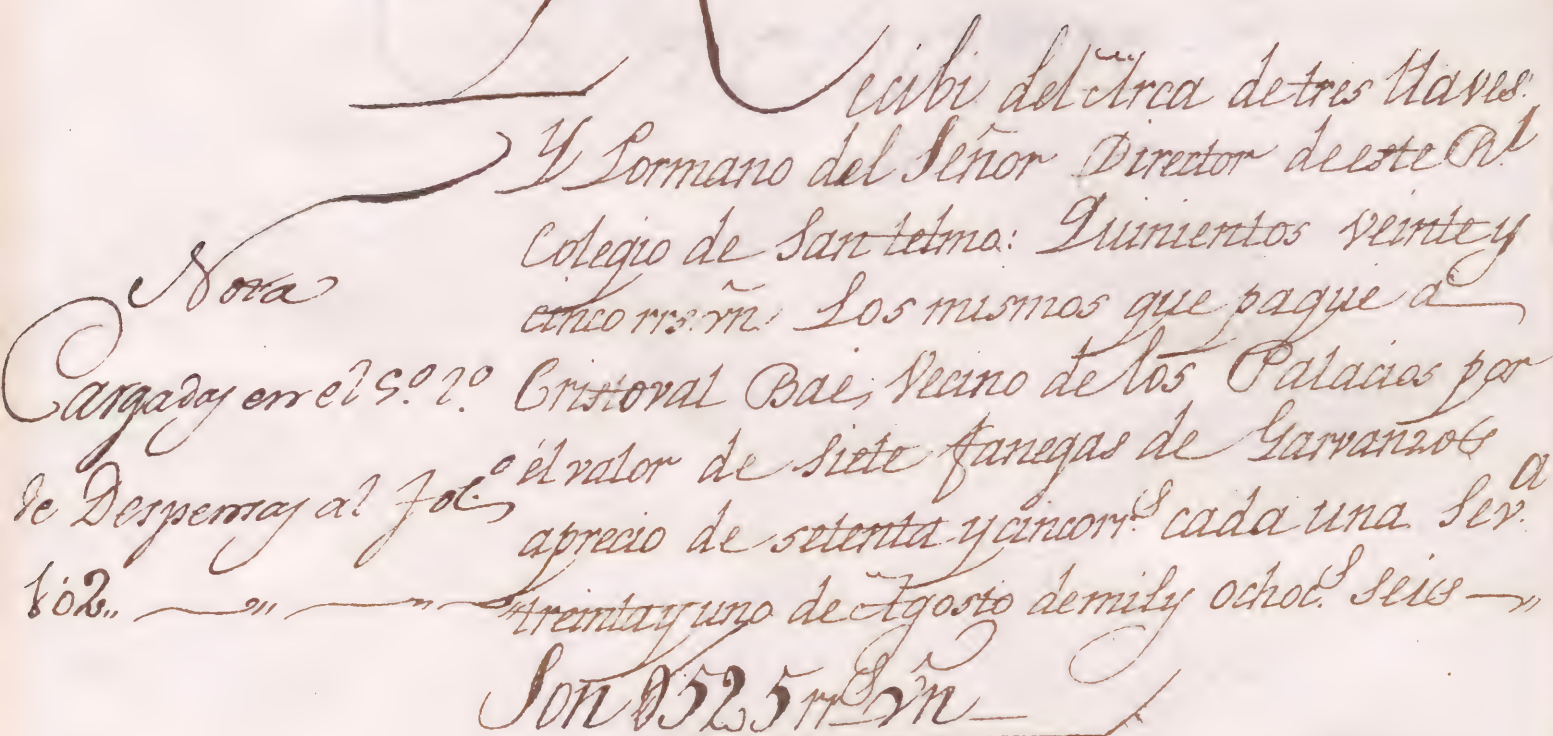 Recibi del Arca de tres llaves
Y Pormano del Señor Director de este Rl
Colegio de San telmo: Quinientos veinte y
cinco rrs. vn. Los mismos que pague a
Cristoval Bae, Vecino de los Palacios por
el valor de siete fanegas de Garvanzos
aprecio de setenta y cinco rrs cada una Seva
treinta y uno de Agosto de mil y ochocs. seis
Son 525 rrs vn
Nota
Cargados en el
de Despensas al Folo
162